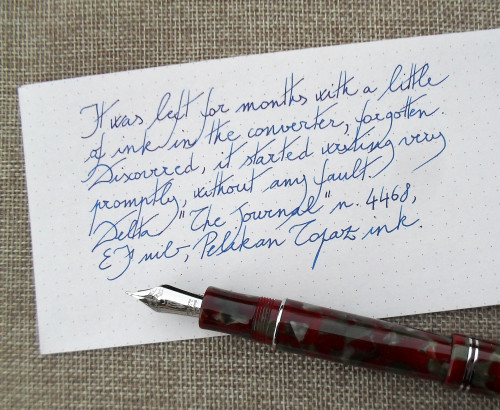 It was left for months with a little
of ink in the converter, forgotten.
Discovered, it started writing very
promptly, without any fault.
Delta "The Journal" n. 4468,
EF nib, Pelikan Topaz ink.